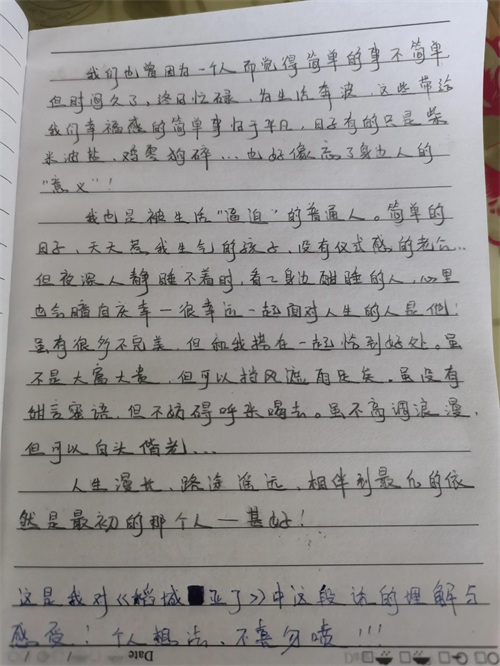 我们也曾因为一个人而觉得简单的事不简单
但时间久了，终日忙碌，为生活奔波，这些带给
我们幸福感的简单事归于平凡，日子有的只是柴
米油盐，鸡零狗碎…也好像忘了身边人的
“意义”！
我也是被生活“逼迫”的普通人。简单的
日子，天天惹我生气的孩子，没有仪式感的老公…
但夜深人静睡不着时，看看身边酣睡的人，心里
也会暗自庆幸—很幸运一起面对人生的人是他！
虽有很多不完美，但和我搭在一起恰到好处。虽
不是大富大贵，但可以挡风遮雨足矣。虽没有
甜言蜜语，但不妨碍呼来喝去。虽不高调浪漫，
但可以白头偕老…
人生漫长，路途遥远，相伴到最后的依
然是最初的那个人—甚好！
这是我对《稻城亚丁》中这段话的理解与
感受！个人想法，不喜勿喷！！！
Date